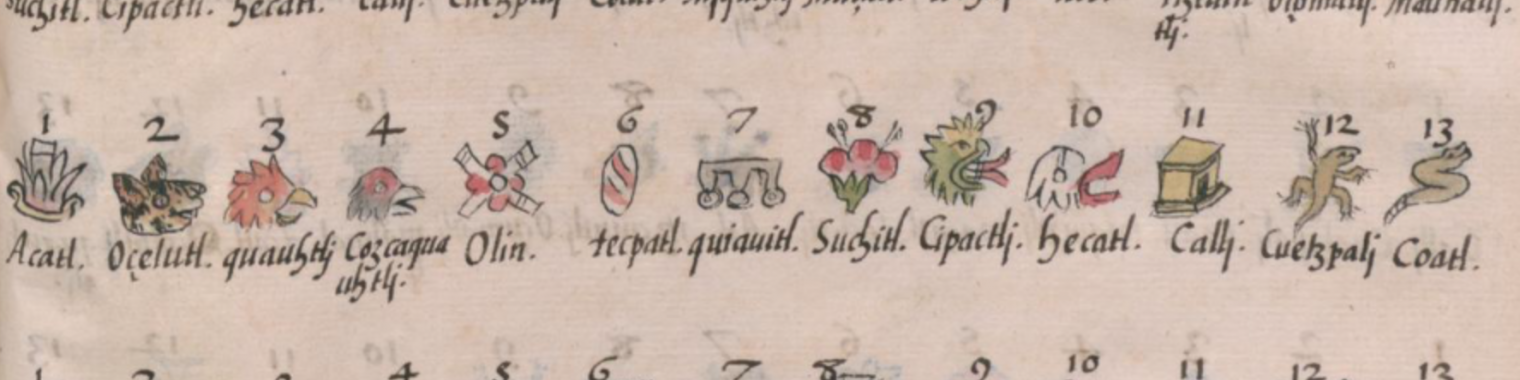 Cipactli. hecatl. calli.
tlj.
1 2 3 4 5 6 7 8 9 10 11 12 13
Acatl. Oçelutl. quauhtlj Cozcaqua Olin. tecpatl. quiauitl. Suchitl. Cipactlj. hecatl. Callj. Cuetzpalj Coatl.
uhtlj.
1 2 3 4 5 6 7 8 9 10 11 12 13